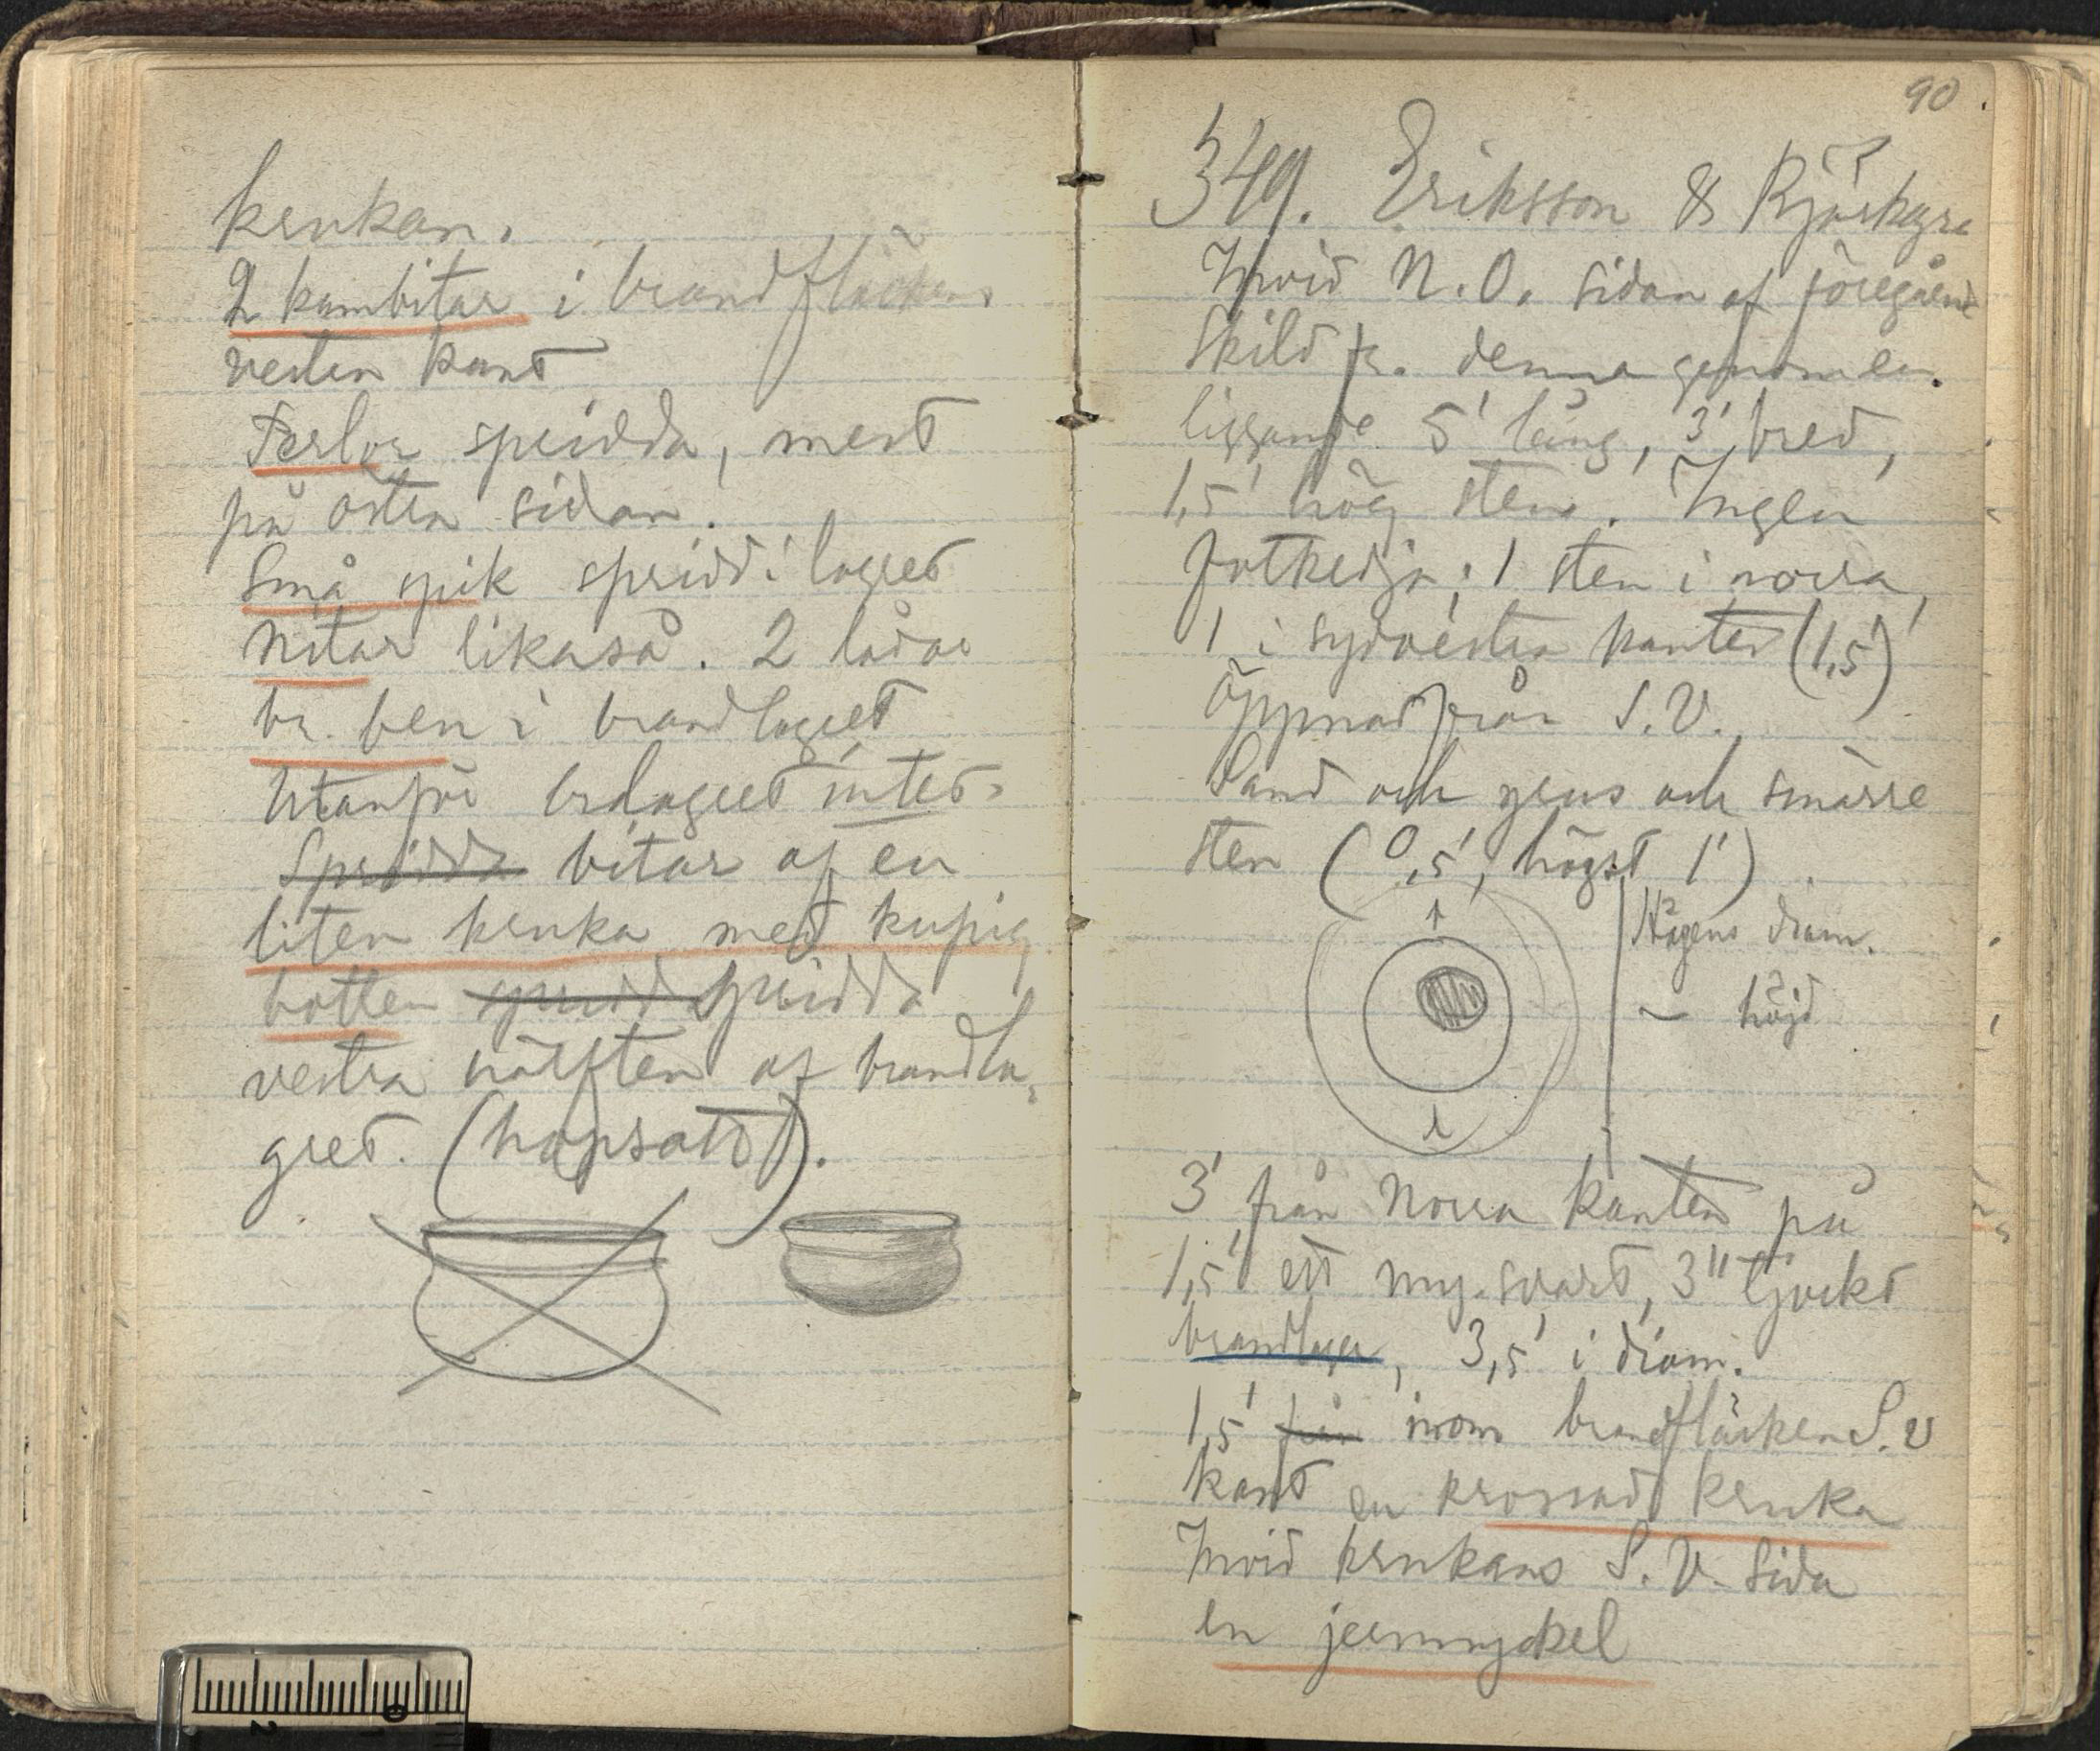 krukan.
2 kambitar i brandfläckens
vestra kant
Perlor spridda, mest
på östra sidan.
Små spik spridd i lagret
Nitar likaså. 2 lådor
br. ben i brandlagret
Utanför brdlagret intet.
Spridda bitar af en
liten kruka med kupig
botten spridd spridda
vestra hälften af brandla,
gret. (hopsatt).
90.
349. Eriksson &
Invid N.O. sidan af föregående
skild fr. denna genom en
liggande 5' lång, 3' bred,
1,5' hög sten. Ingen
fotkedja; 1 sten i norra,
1 i sydvestra kanten (1,5')
Öppnad från S.V.
Sand och grus och smärre
sten (0,5', högst 1')
Högens diam.
— höjd
3' från Norra kanten på
1,5' ett my. svart, 3" tjockt
brandlager, 3,5' i diam.
1,5' från inom brandfläcken S.V
kant en krossad kruka
Invid krukans S.V. sida
en jernnyckel